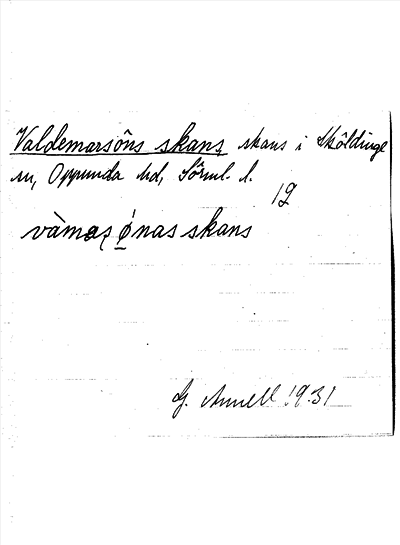 Valdemarsöns skans, skans i Sköldinge
sn, Oppunda hd, Sörml. l.
19
vàmaꞩ ǿnas skans
G. Annell 1931